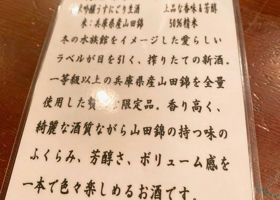 米吟醸うすにごり生酒　上品な香味&芳醇
米：兵庫県産山田錦　50%精米
冬の水族館をイメージした愛らしい
ラベルが目を引く、搾りたての新酒。
一等級以上の兵庫県産山田錦を全量
使用した贅 な限定品。香り高く、
綺麗な酒質ながら山田錦の持つ味の
ふくらみ、芳醇さ、ボリューム感を
一本で色々楽しめるお酒です。